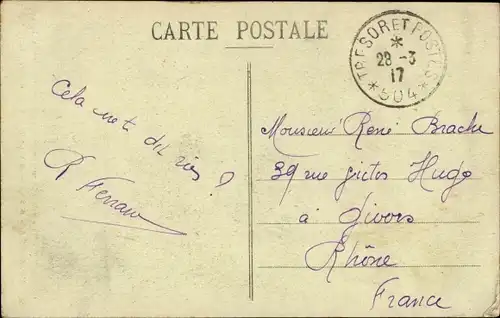 CARTE POSTALE
TRESOR ET POSTES
*
28 -3
17
* 504 *
Cela ne te dit rien ?
R Ferrand
Monsieur René Brache
39 rue Victor Hugo
à Givors
Rhône
France